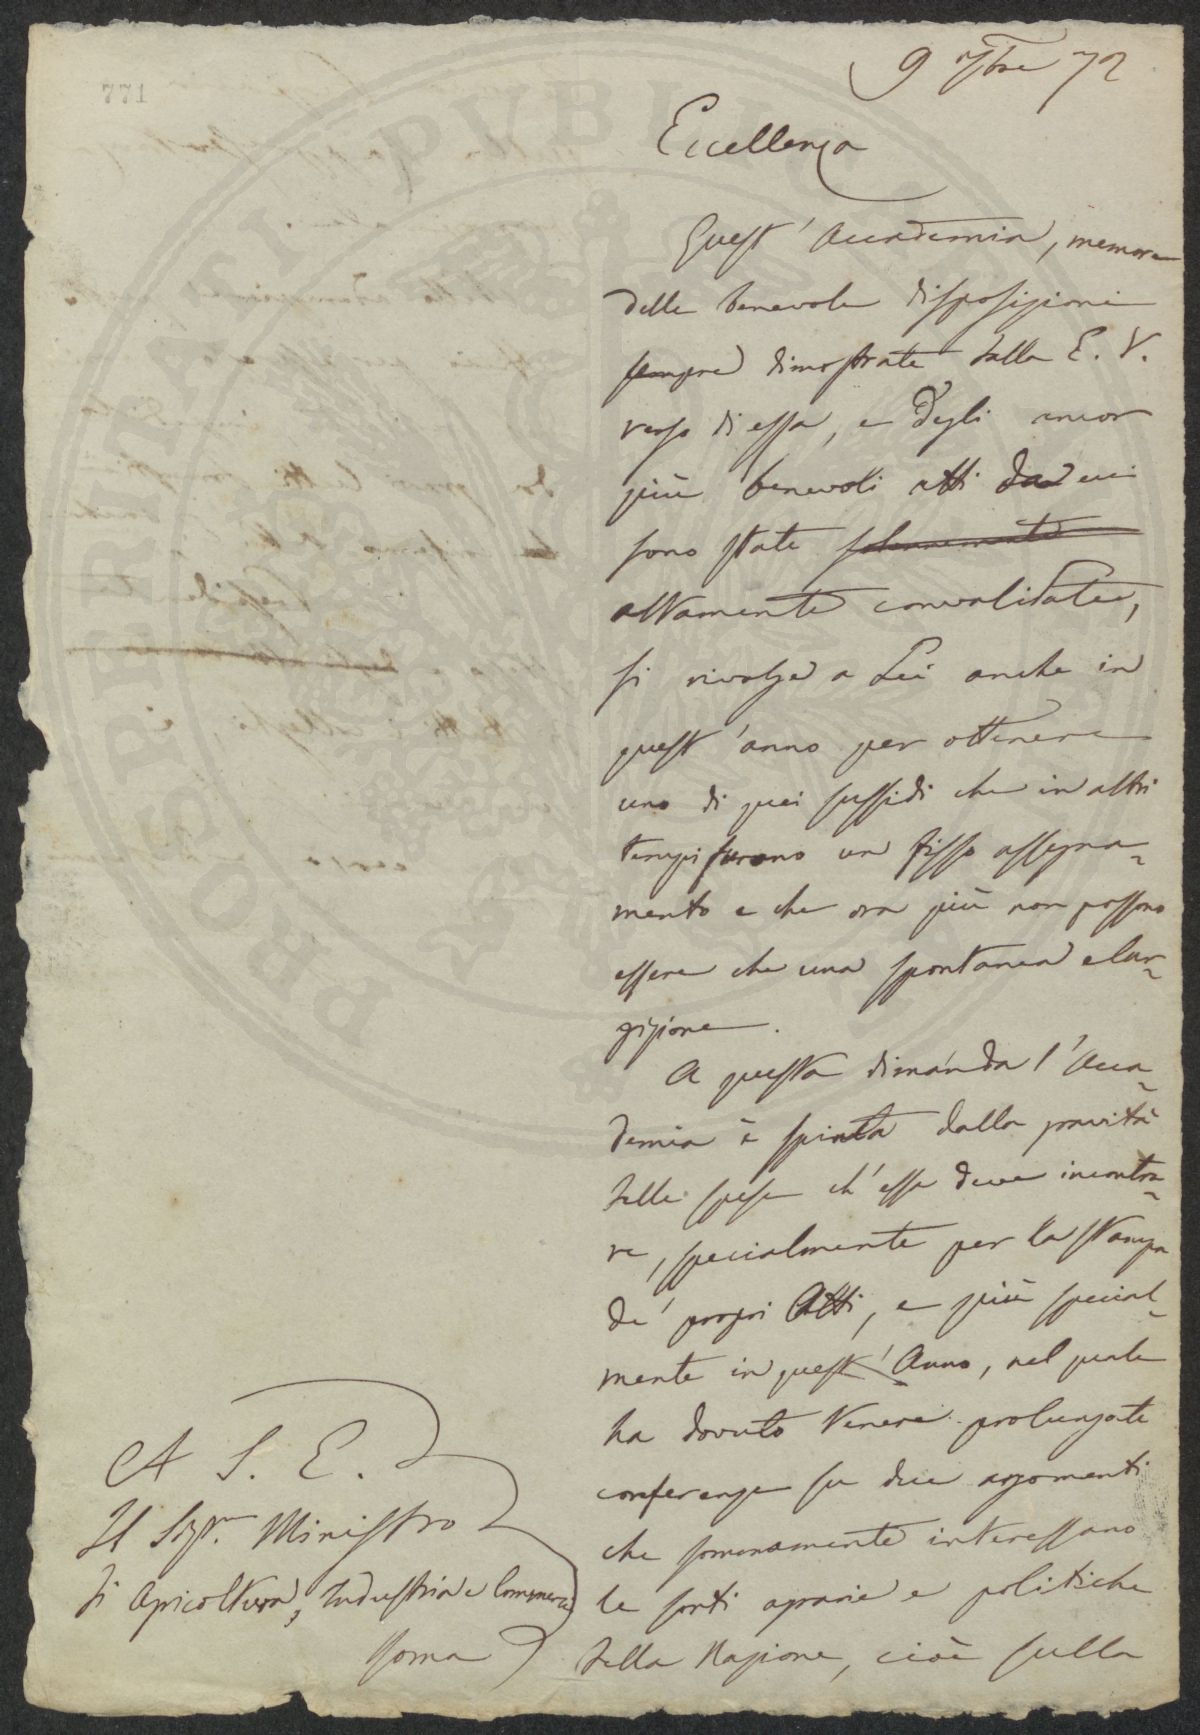 771
9 9bre 72
Eccellenza
Quest'Accademia, memore
delle benevole disposizioni
sempre dimostrate dalla E. V.
verso di essa, e degli ancor
più benevoli atti da cui
sono state solennemente
altamente convalidate,
si rivolge a Lei anche in
quest'anno per ottenere
uno di quei sussidi che in altri
tempi furono un fisso assegna-
mento e che ora più non possono
essere che una spontanea elar-
gizione.
A questa dimanda l'Acca-
demia è spinta dalla gravità
delle spese ch'essa deve incontra-
re, specialmente per la stampa
de' propri Atti, e più special-
mente in quest'Anno, nel quale
ha dovuto tenere prolungate
conferenze su due argomenti
che sommamente interessano
le sorti agrarie e politiche
della Nazione, cioè sulla
A S. E.
Il Sigr. Ministro
di Agricoltura, Industria e Commercio
Roma